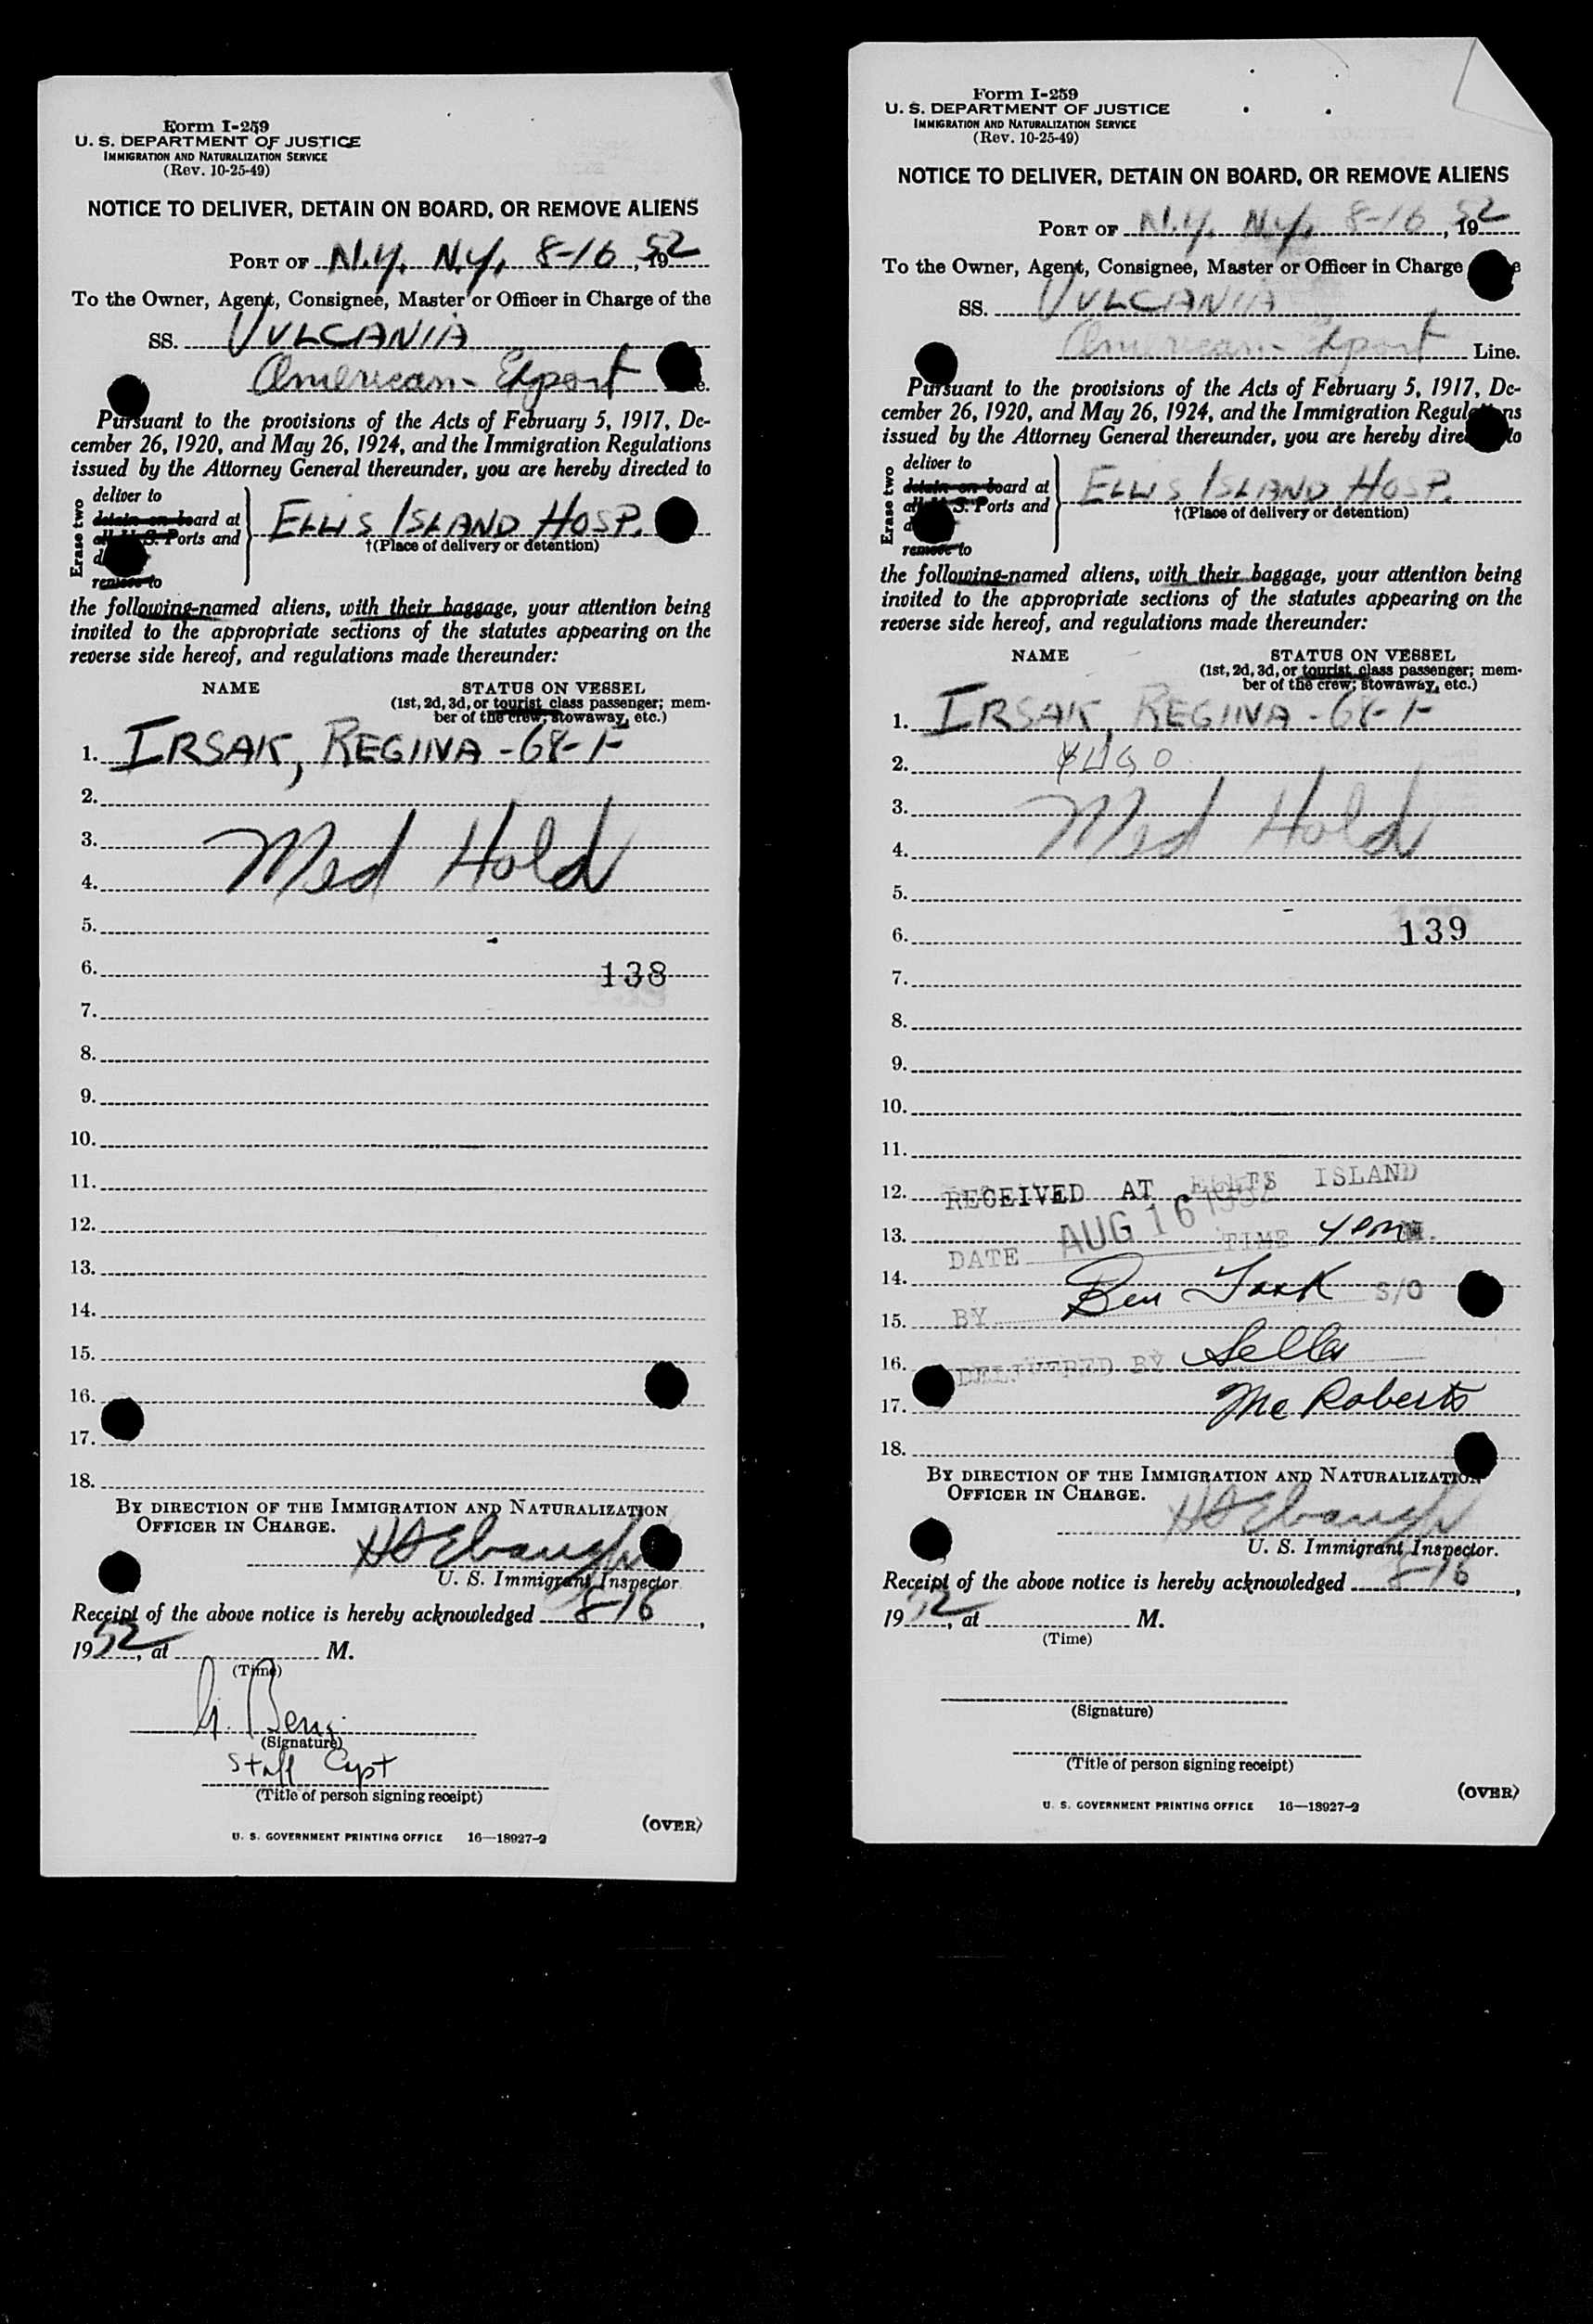 Form I-259
U. S. DEPARTMENT OF JUSTICE
IMMIGRATION AND NATURALIZATION SERVICE
(Rev. 10-25-49)
NOTICE TO DELIVER, DETAIN ON BOARD, OR REMOVE ALIENS
PORT OF N.Y. N.Y. 8-16, 1952
To the Owner, Agent, Consignee, Master or Officer in Charge of the
SS. VULCANIA
American Export
Pursuant to the provisions of the Acts of February 5, 1917, De-
cember 26, 1920, and May 26, 1924, and the Immigration Regulations
issued by the Attorney General thereunder, you are hereby directed to
Erase two
deliver to
detain on board at
all U. S. Ports and
remove to
ELLIS ISLAND HOSP.
†(Place of delivery or detention)
the following-named aliens, with their baggage, your attention being
invited to the appropriate sections of the statutes appearing on the
reverse side hereof, and regulations made thereunder:
NAME STATUS ON VESSEL
(1st, 2d, 3d, or tourist class passenger; mem-
ber of the crew; stowaway, etc.)
1. IRSAK, REGINA - 68-F
2.
3. Med Hold
4.
5.
6. 138
7.
8.
9.
10.
11.
12.
13.
14.
15.
16.
17.
18.
BY DIRECTION OF THE IMMIGRATION AND NATURALIZATION
OFFICER IN CHARGE.
Ebaugh
U. S. Immigrant Inspector
Receipt of the above notice is hereby acknowledged 8-16,
1952, at M.
(Time)
(Signature)
Staff Capt
(Title of person signing receipt)
(OVER)
U. S. GOVERNMENT PRINTING OFFICE 16—18927-2
Form I-259
U. S. DEPARTMENT OF JUSTICE
IMMIGRATION AND NATURALIZATION SERVICE
(Rev. 10-25-49)
NOTICE TO DELIVER, DETAIN ON BOARD, OR REMOVE ALIENS
PORT OF N.Y. N.Y. 8-16, 1952
To the Owner, Agent, Consignee, Master or Officer in Charge
SS. VULCANIA
American Export Line.
Pursuant to the provisions of the Acts of February 5, 1917, De-
cember 26, 1920, and May 26, 1924, and the Immigration Regulations
issued by the Attorney General thereunder, you are hereby directed to
Erase two
deliver to
detain on board at
all U. S. Ports and
remove to
ELLIS ISLAND HOSP.
†(Place of delivery or detention)
the following-named aliens, with their baggage, your attention being
invited to the appropriate sections of the statutes appearing on the
reverse side hereof, and regulations made thereunder:
NAME STATUS ON VESSEL
(1st, 2d, 3d, or tourist class passenger; mem-
ber of the crew; stowaway, etc.)
1. IRSAK, REGINA - 68-F
2. YUGO
3. Med Hold
4.
5.
6. 139
7.
8.
9.
10.
11.
12. RECEIVED AT ELLIS ISLAND
13. DATE AUG 16 1952 TIME 4 PM
14. Ben S/O
15. BY
16. DELIVERED BY
17. McRoberts
18.
BY DIRECTION OF THE IMMIGRATION AND NATURALIZATION
OFFICER IN CHARGE.
Ebaugh
U. S. Immigrant Inspector.
Receipt of the above notice is hereby acknowledged 8-16,
1952, at M.
(Time)
(Signature)
(Title of person signing receipt)
(OVER)
U. S. GOVERNMENT PRINTING OFFICE 16—18927-2